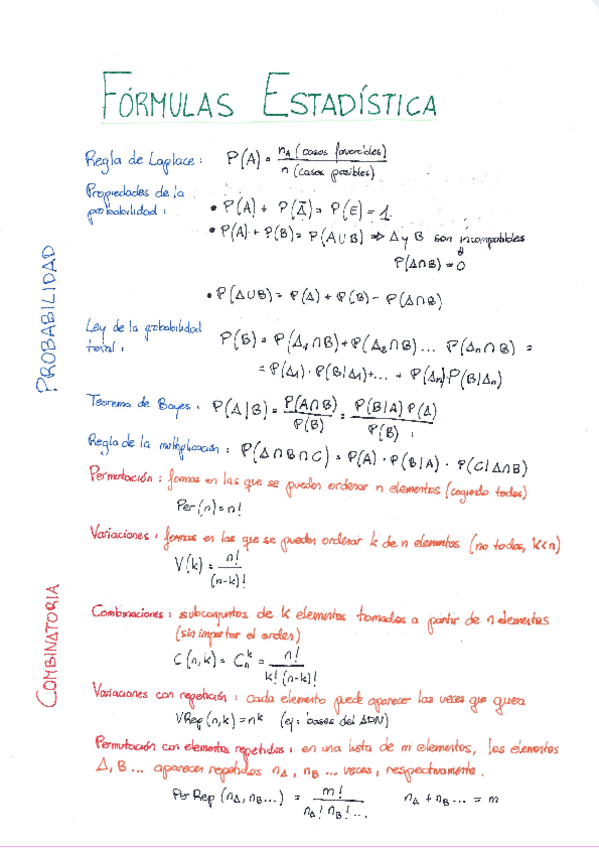 FÓRMULAS ESTADÍSTICA
PROBABILIDAD
Regla de Laplace: P(A) = n_A (casos favorables) / n (casos posibles)
Propiedades de la
probabilidad: • P(A) + P(Ā) = P(E) = 1
• P(A) + P(B) = P(A∪B) ⇒ A y B son incompatibles
⇓
P(A∩B) = 0
• P(A∪B) = P(A) + P(B) - P(A∩B)
Ley de la probabilidad
total: P(B) = P(A₁∩B) + P(A₂∩B) ... P(Aₙ∩B) =
= P(A₁) · P(B|A₁) + ... + P(Aₙ) · P(B|Aₙ)
Teorema de Bayes: P(A|B) = P(A∩B) / P(B) = P(B|A) P(A) / P(B)
Regla de la multiplicación: P(A∩B∩C) = P(A) · P(B|A) · P(C|A∩B)
COMBINATORIA
Permutación: formas en las que se pueden ordenar n elementos (cogiendo todos)
Per(n) = n!
Variaciones: formas en las que se pueden ordenar k de n elementos (no todos, k<n)
V(k) = n! / (n-k)!
Combinaciones: subconjuntos de k elementos tomados a partir de n elementos
(sin importar el orden)
C(n,k) = Cₙᵏ = n! / k! (n-k)!
Variaciones con repetición: cada elemento puede aparecer las veces que quiera
VRep(n,k) = nᵏ (ej: bases del ADN)
Permutación con elementos repetidos: en una lista de m elementos, los elementos
A, B ... aparecen repetidos n_A, n_B ... veces, respectivamente.
Per Rep (n_A, n_B ...) = m! / n_A! n_B! ... n_A + n_B ... = m